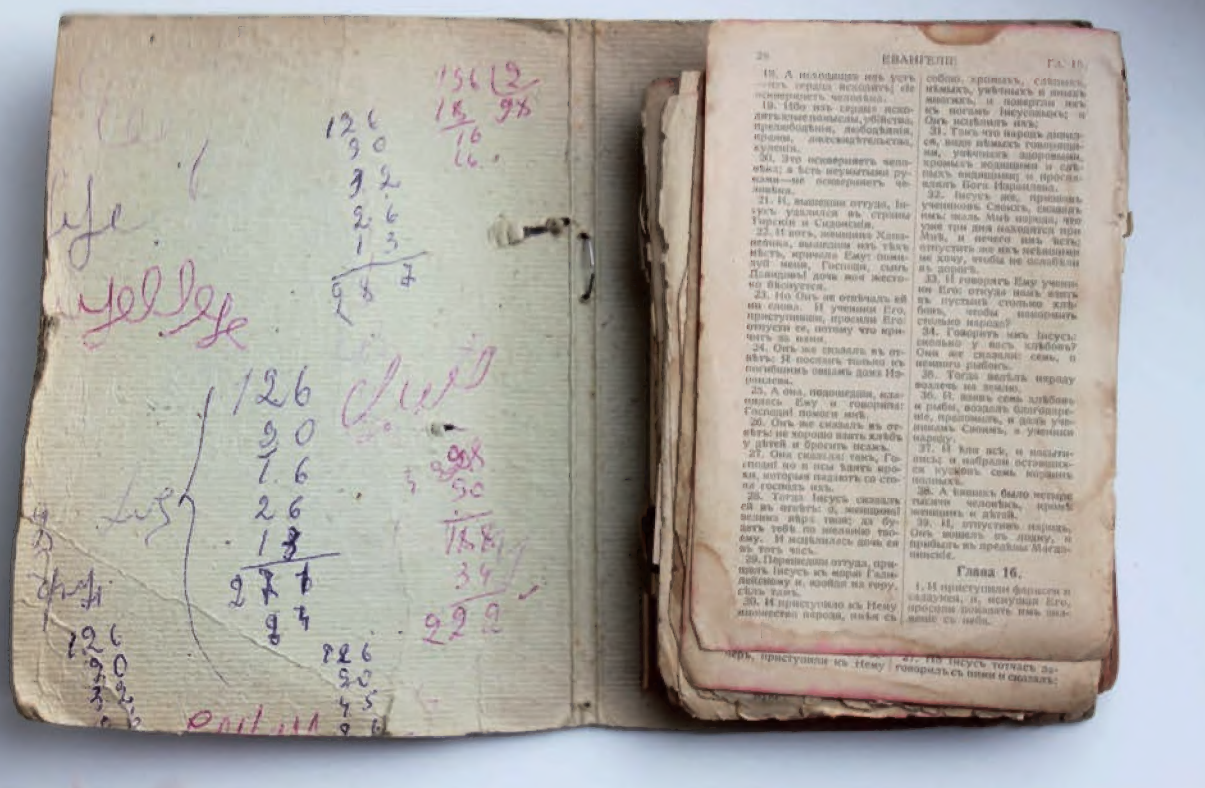 196 2
18 98
16
16
126
90
32
26
13
287
126
90
16
26
13
98
90
188
34
222
126
90
32
126
90
45
28 ЕВАНГЕЛІЕ Гл. 15.
18. А исходящее изъ устъ
изъ сердца исходитъ; сіе
оскверняетъ человѣка.
19. Ибо изъ сердца исхо-
дятъ злые помыслы, убійства,
прелюбодѣянія, любодѣянія,
кражи, лжесвидѣтельства,
хуленія.
20. Это оскверняетъ чело-
вѣка; а ѣсть неумытыми ру-
ками—не оскверняетъ че-
ловѣка.
21. И, вышедши оттуда, Іи-
сусъ удалился въ страны
Тирскія и Сидонскія.
22. И вотъ, женщина Хана-
неянка, вышедши изъ тѣхъ
мѣстъ, кричала Ему: поми-
луй меня, Господи, сынъ
Давидовъ! дочь моя жесто-
ко бѣснуется.
23. Но Онъ не отвѣчалъ ей
ни слова. И ученики Его,
приступивши, просили Его:
отпусти ее, потому что кри-
читъ за нами.
24. Онъ же сказалъ въ от-
вѣтъ: Я посланъ только къ
погибшимъ овцамъ дома Из-
раилева.
25. А она, подошедши, кла-
нялась Ему и говорила:
Господи! помоги мнѣ.
26. Онъ же сказалъ въ от-
вѣтъ: не хорошо взять хлѣбъ
у дѣтей и бросить псамъ.
27. Она сказала: такъ, Го-
споди! но и псы ѣдятъ кро-
хи, которыя падаютъ со сто-
ла господъ ихъ.
28. Тогда Іисусъ сказалъ
ей въ отвѣтъ: о, женщина!
велика вѣра твоя; да бу-
детъ тебѣ по желанію тво-
ему. И исцѣлилась дочь ея
въ тотъ часъ.
29. Перешедши оттуда, при-
шелъ Іисусъ къ морю Гали-
лейскому и, взойдя на гору,
сѣлъ тамъ.
30. И приступило къ Нему
множество народа, имѣя съ
собою хромыхъ, слѣпыхъ,
нѣмыхъ, увѣчныхъ и иныхъ
многихъ, и повергли ихъ
къ ногамъ Іисусовымъ; и
Онъ исцѣлилъ ихъ;
31. Такъ что народъ дивил-
ся, видя нѣмыхъ говорящи-
ми, увѣчныхъ здоровыми,
хромыхъ ходящими и слѣ-
пыхъ видящими; и просла-
влялъ Бога Израилева.
32. Іисусъ же, призвавъ
учениковъ Своихъ, сказалъ
имъ: жаль Мнѣ народа, что
уже три дня находятся при
Мнѣ, и нечего имъ ѣсть;
отпустить же ихъ неѣвшими
не хочу, чтобы не ослабѣли
въ дорогѣ.
33. И говорятъ Ему учени-
ки Его: откуда намъ взять
въ пустынѣ столько хлѣ-
бовъ, чтобы накормить
столько народа?
34. Говоритъ имъ Іисусъ:
сколько у васъ хлѣбовъ?
Они же сказали: семь, и
немного рыбокъ.
35. Тогда велѣлъ народу
возлечь на землю.
36. И, взявъ семь хлѣбовъ
и рыбы, воздалъ благодаре-
ніе, преломилъ, и далъ уче-
никамъ Своимъ, а ученики
народу.
37. И ѣли всѣ, и насыти-
лись; и набрали оставших-
ся кусковъ семь корзинъ
полныхъ.
38. А ѣвшихъ было четыре
тысячи человѣкъ, кромѣ
женщинъ и дѣтей.
39. И, отпустивъ народъ,
Онъ вошелъ въ лодку, и
прибылъ въ предѣлы Магда-
линскіе.
Глава 16.
1. И приступили фарисеи и
саддукеи, и, искушая Его,
просили показать имъ зна-
меніе съ неба.
приступили къ Нему
27. Но Іисусъ тотчасъ за-
говорилъ съ ними и сказалъ: